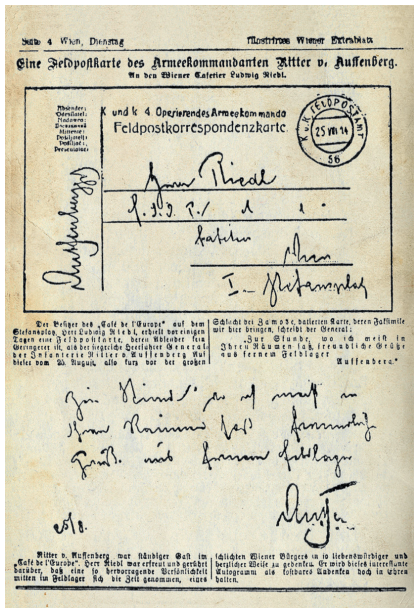 Seite 4 Wien, Dienstag Illustrirtes Wiener Extrablatt
Eine Feldpostkarte des Armeekommandanten Ritter v. Auffenberg.
An den Wiener Cafetier Ludwig Riedl.
Absender:
K und k 4. Operierendes Armeekommando
Feldpostkorrespondenzkarte.
K.u.K. FELDPOSTAMT
25 VIII 14
56
Herrn Riedl
Cafetier
Wien
I. Stefansplatz
Der Besitzer des „Café de l'Europe" auf dem
Stefansplatz, Herr Ludwig Riedl, erhielt vor einigen
Tagen eine Feldpostkarte, deren Absender kein
Geringerer ist, als der siegreiche Heerführer General
der Infanterie Ritter v. Auffenberg. Auf
vom 25. August, also kurz vor der großen
Schlacht bei Zamosc, datierten Karte, deren Faksimile
wir hier bringen, schreibt der General:
„Zur Stunde, wo ich meist in
Ihren Räumen saß, freundliche Grüße
aus fernem Feldlager
Auffenberg."
Zur Stunde, wo ich meist in
Ihren Räumen saß freundliche
Grüße aus fernem Feldlager
25/8.
Ritter v. Auffenberg war ständiger Gast im
„Café de l'Europe". Herr Riedl war erfreut und gerührt
darüber, daß eine so hervorragende Persönlichkeit
mitten im Feldlager sich die Zeit genommen, eines
schlichten Wiener Bürgers in so liebenswürdiger und
herzlicher Weise zu gedenken. Er wird dieses interessante
Autogramm als kostbares Andenken hoch in Ehren
halten.